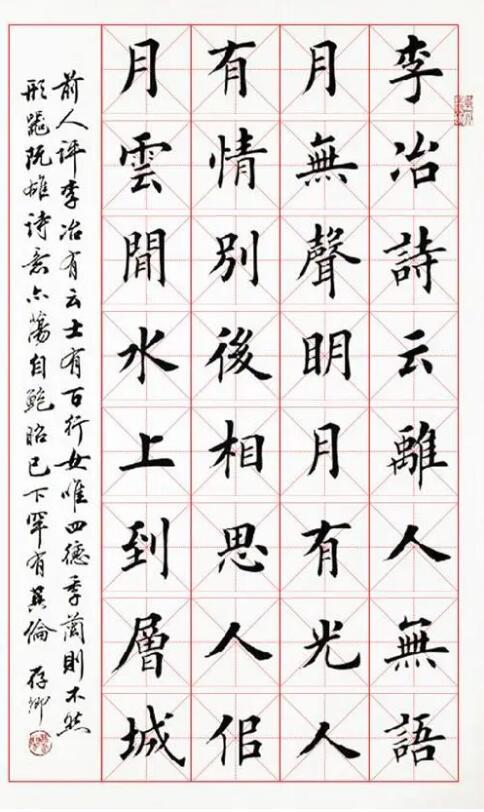 李冶詩云離人無語
月無聲明月有光人
有情別後相思人佀
月雲間水上到層城
前人评李冶有云士有百行女唯四德季蘭則不然
形氣既雄詩意亦蕩自鮑昭已下罕有其倫 存卿